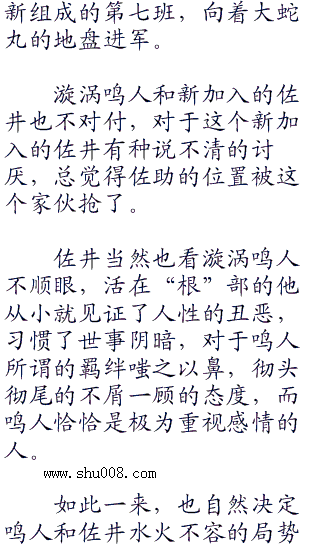 新组成的第七班，向着大蛇
丸的地盘进军。
漩涡鸣人和新加入的佐
井也不对付，对于这个新加
入的佐井有种说不清的讨
厌，总觉得佐助的位置被这
个家伙抢了。
佐井当然也看漩涡鸣人
不顺眼，活在“根”部的他
从小就见证了人性的丑恶，
习惯了世事阴暗，对于鸣人
所谓的羁绊嗤之以鼻，彻头
彻尾的不屑一顾的态度，而
鸣人恰恰是极为重视感情的
人。
www.shu008.com
如此一来，也自然决定
鸣人和佐井水火不容的局势